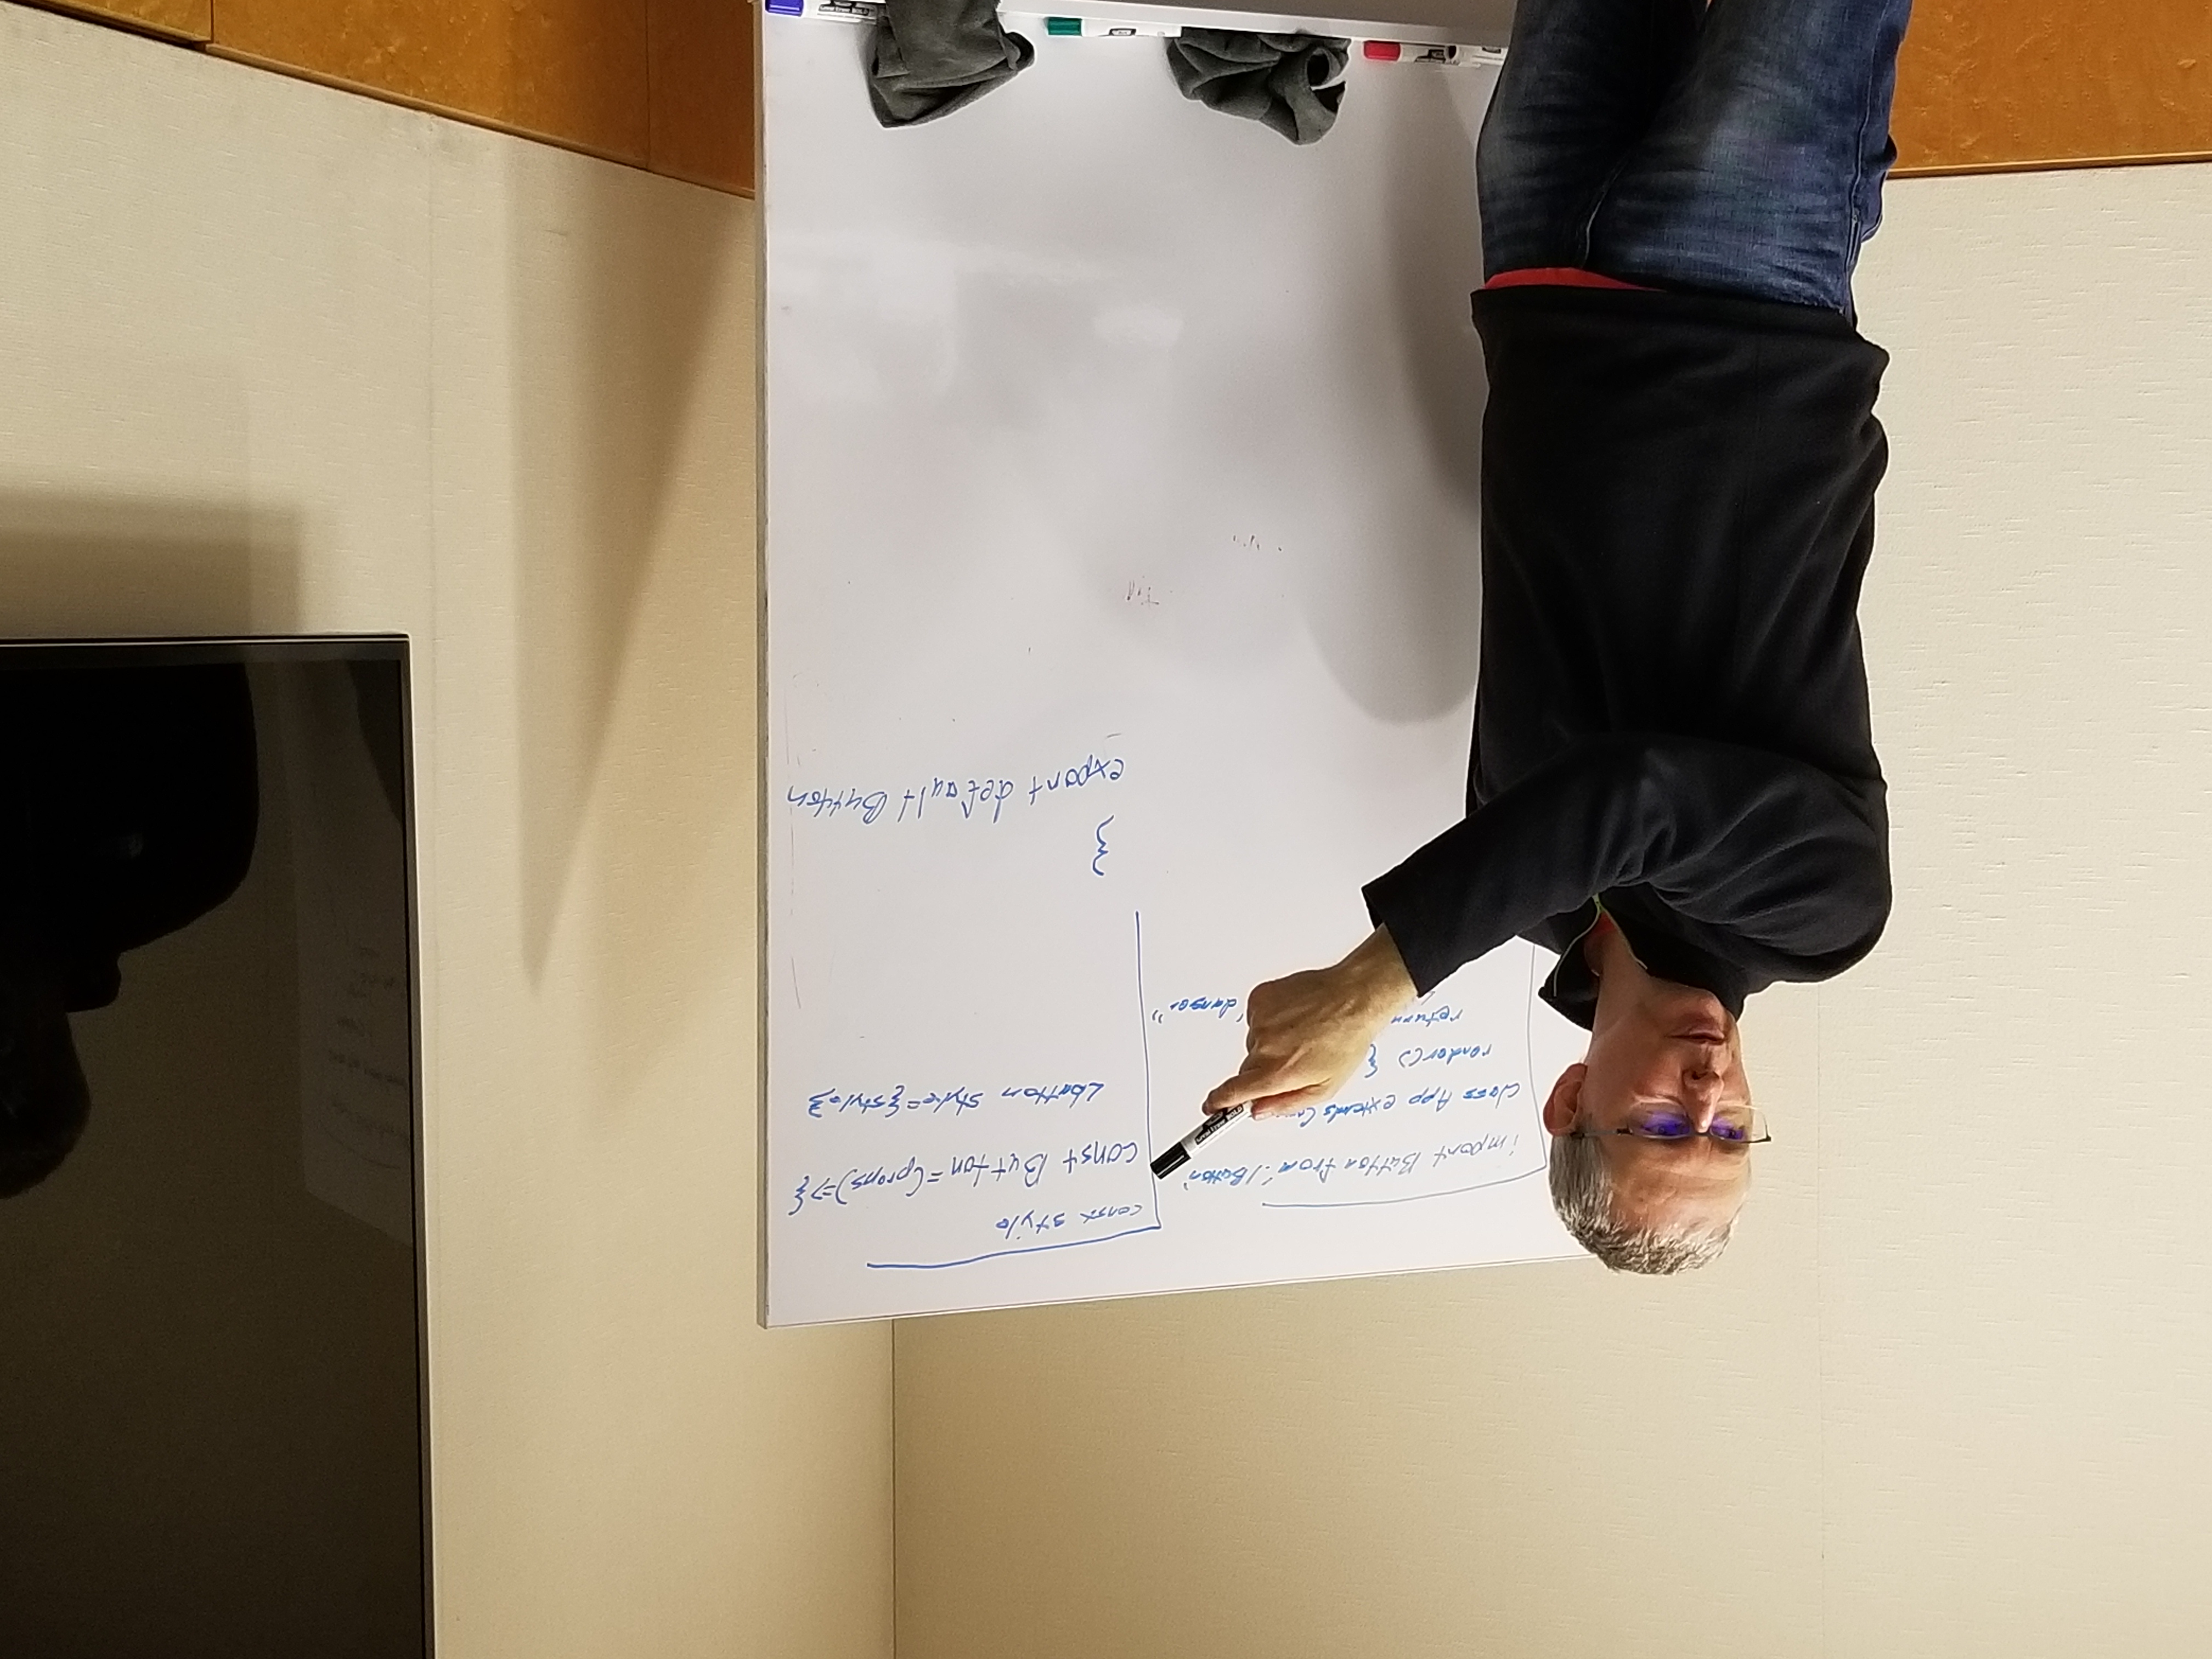 import Button from './Button'
class App extends Com
render() {
return
'danger'
const style
const Button = (props) => {
<button style={style}
}
export default Button